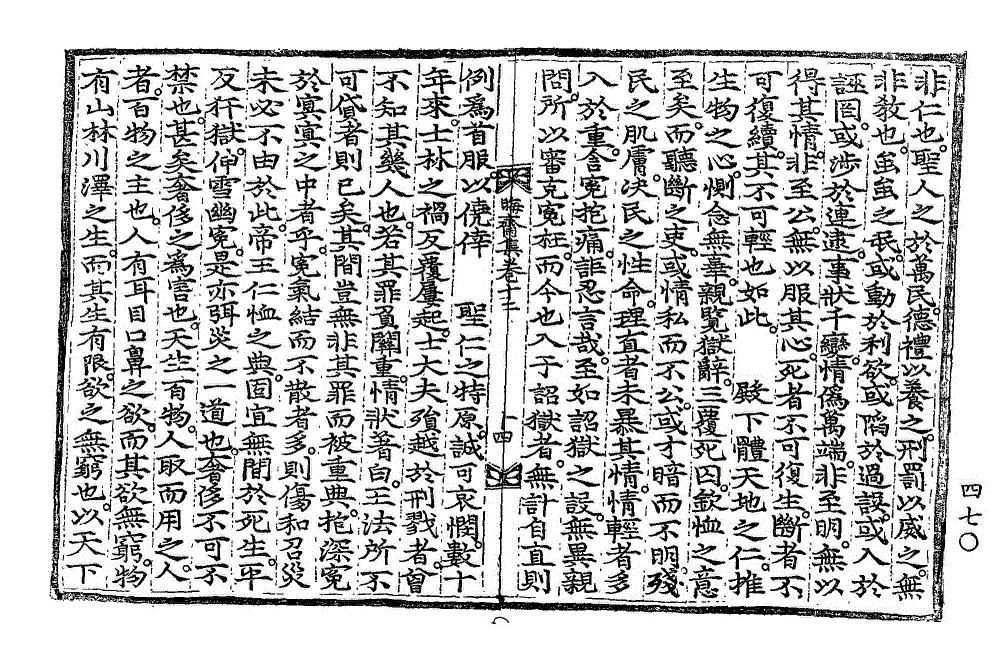 非仁也。聖人之於萬民。德禮以養之。刑罰以威之。無
非敎也。蚩蚩之氓。或動於利欲。或陷於過誤。或入於
誣罔。或涉於連逮。事狀千變。情僞萬端。非至明。無以
得其情。非至公。無以服其心。死者不可復生。斷者不
可復續。其不可輕也如此。 殿下體天地之仁。推
生物之心。惻念無辜。親覽獄辭。三覆死囚。欽恤之意
至矣。而聽斷之吏。或情私而不公。或才暗而不明。殘
民之肌膚。决民之性命。理直者未暴其情。情輕者多
入於重。含寃抱痛。詎忍言哉。至如詔獄之設。無異親
問。所以審克寃枉。而今也入于詔獄者。無計自直則
例爲首服。以僥倖 聖仁之特原。誠可哀憫。數十
年來。士林之禍。反覆屢起。士大夫殞越於刑戮者。曾
不知其幾人也。若其罪負關重。情狀著白。王法所不
可貸者則已矣。其間豈無非其罪而被重典。抱深寃
於冥冥之中者乎。寃氣結而不散者多。則傷和召災
未必不由於此。帝王仁恤之典。固宜無間於死生。平
反犴獄。伸雪幽寃。是亦弭災之一道也。奢侈不可不
禁也。甚矣奢侈之爲害也。天生百物。人取而用之。人
者。百物之主也。人有耳目口鼻之欲。而其欲無窮。物
有山林川澤之生。而其生有限。欲之無窮也。以天下
晦齋集卷十二
四
四七〇